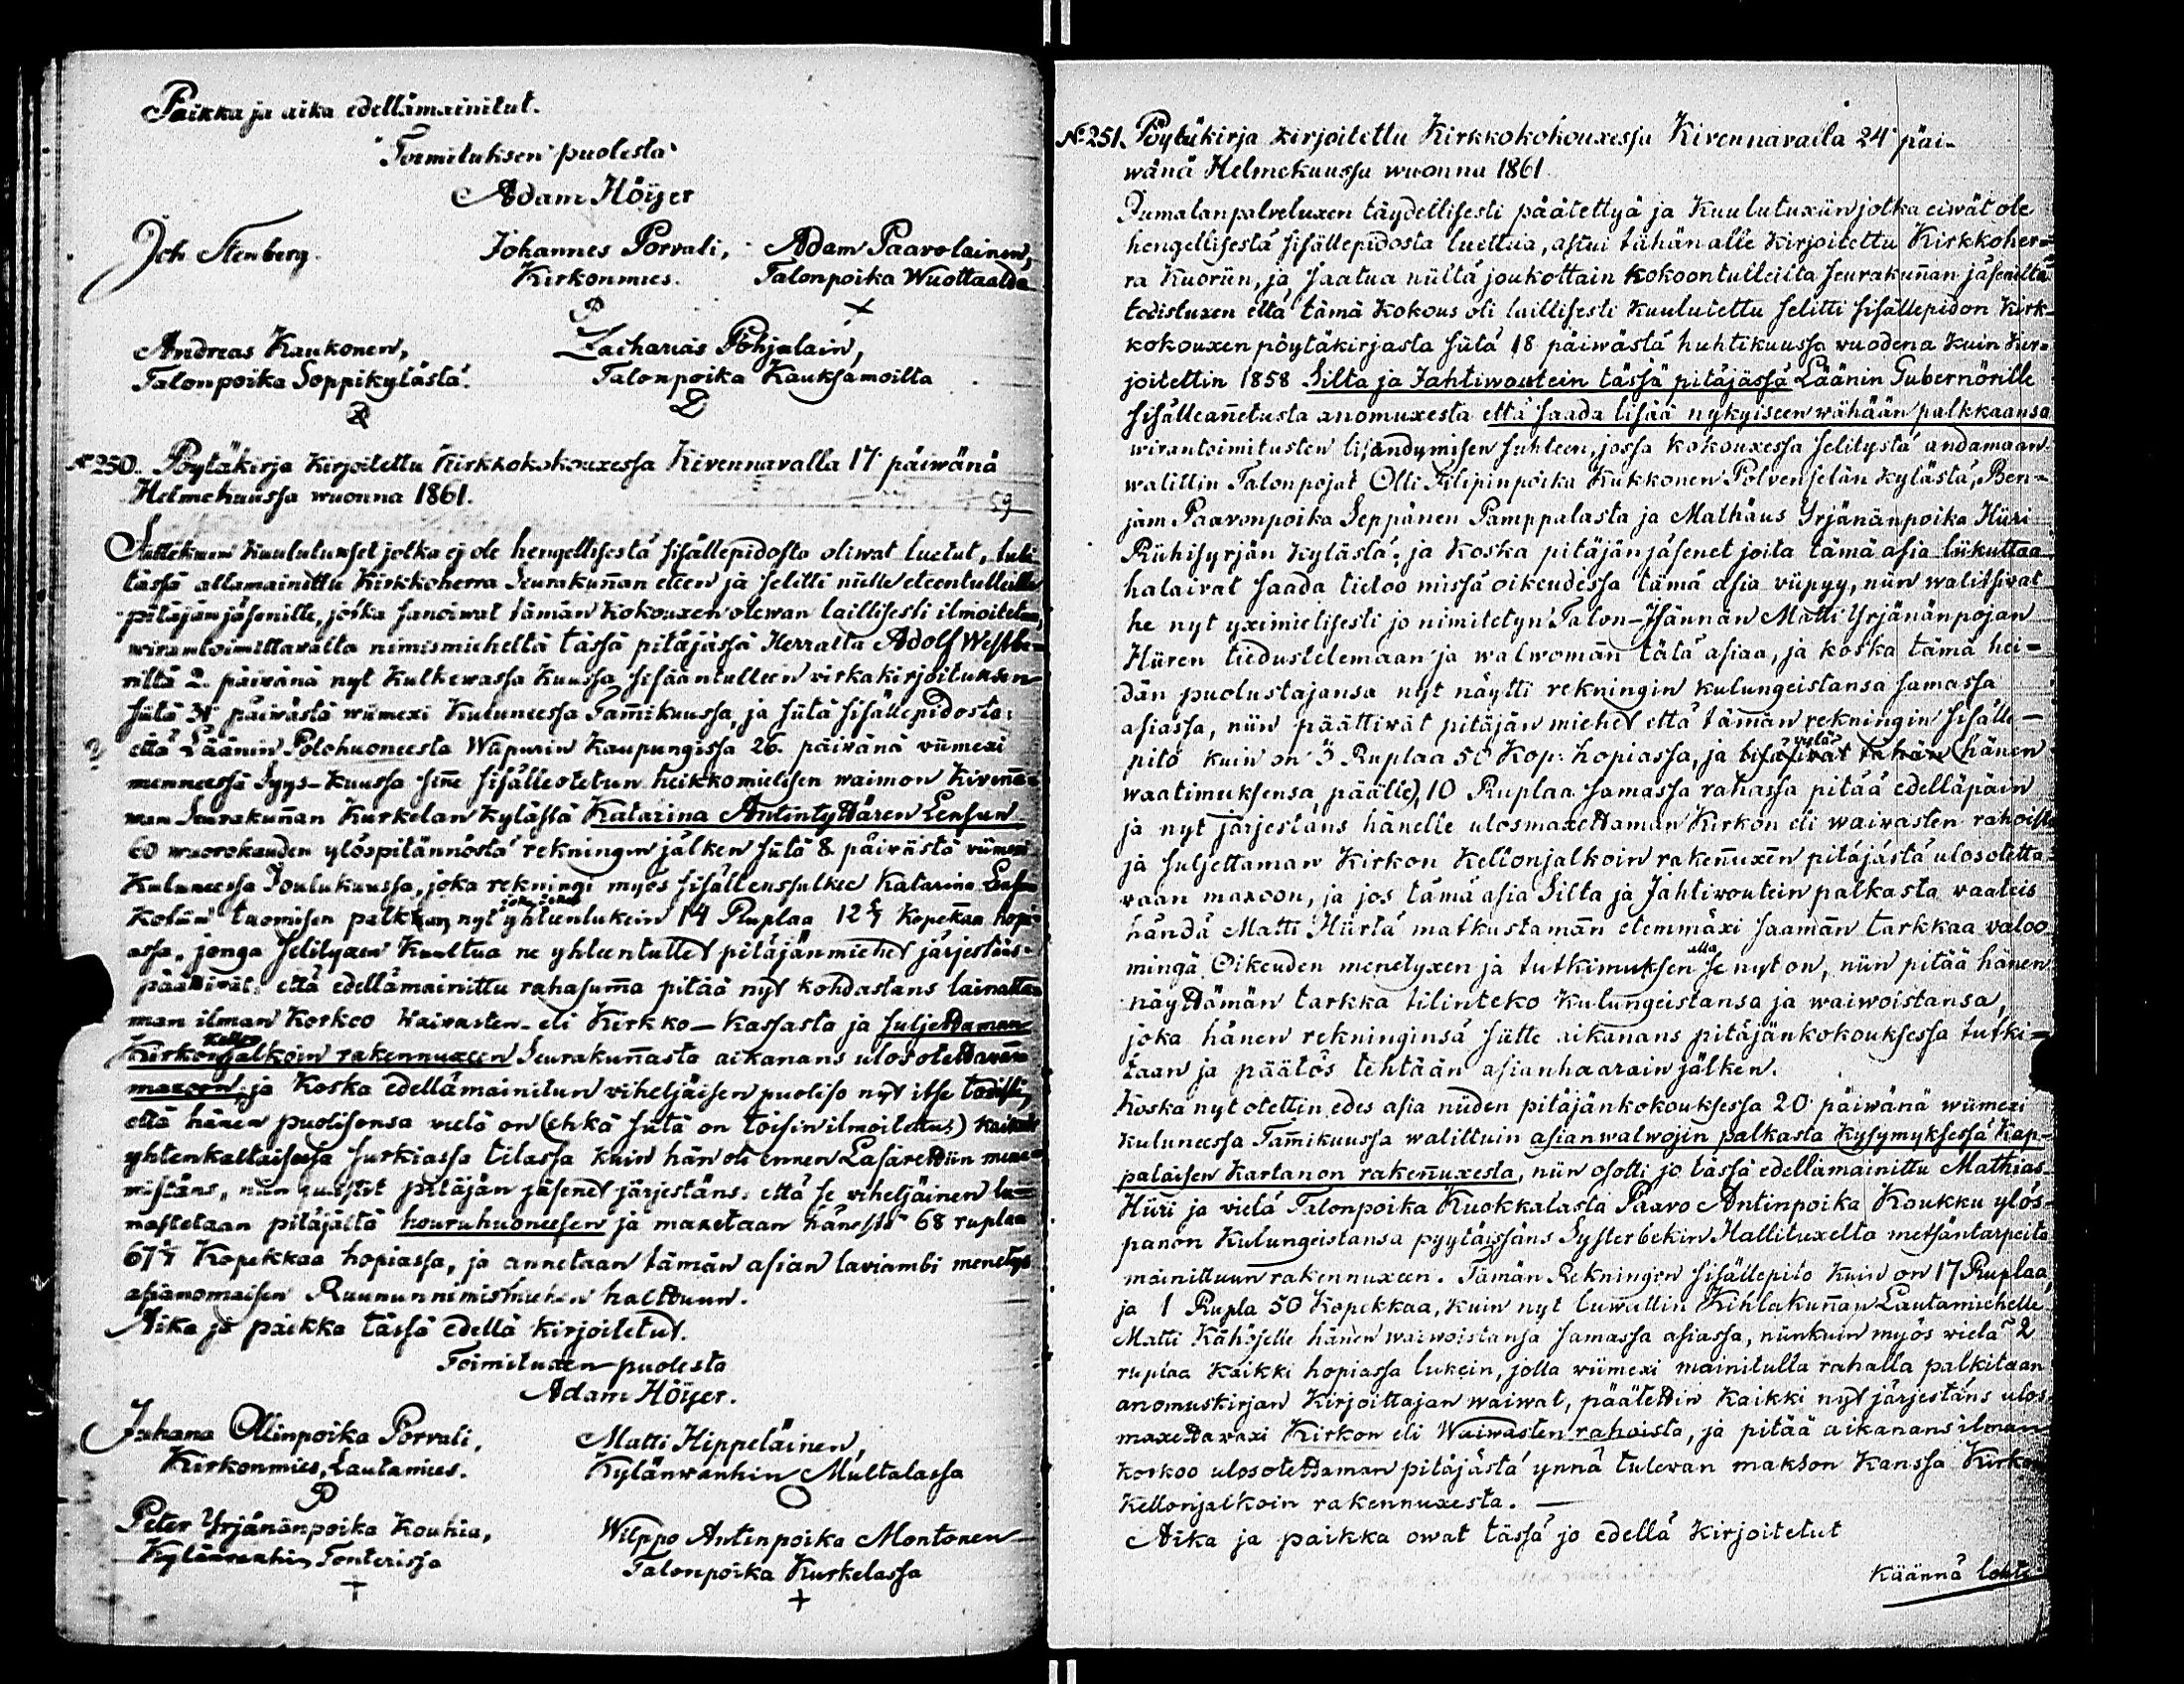 Paikka ja aika edellämainitut.
Toimituksen puolesta
Adam Höijer
Joh Stenberg.
Johannes Porvali,
Kirkonmies.
Adam Paavolainen,
Talonpoika Wuottaalda
Andreas Kaukonen,
Talonpoika Soppikylästä.
Zacharias Pohjalain,
Talonpoika Kauksamoilta
No 250. Pöytäkirja Kirjoitettu Kirkkokokouxessa Kivennavalla 17 päiwänä
Helmekuussa wuonna 1861.
59
Kuulutukset jotka ej ole hengellisestä sisällepidosta oliwat luetut, tuli
tässä allamainittu Kirkkoherra Seurakuñan eteen ja selitti niille eteentulleille
pitäjän jäsenille, jotka sanoiwat tämän Kokouxen olewan laillisesti ilmoitetun,
wirantoimittavalta nimismieheltä tässä pitäjässä Herralta Adolf Westbe-
riltä 2. päiwänä nyt Kulkewassa Kuussa sisääntulleen virkakirjoituksen
siitä 31 päiwästä wiimexi Kuluneessa Tam̃ikuussa, ja siitä sisällepidosta:
että Läänin Potohuoneesta Wiipurin Kaupungissa 26. päiwänä viimexi
menneessä Syys-Kuussa siñe sisälleotetun heikkomielisen waimon Kiveña-
wan Seurakuñan Kurkelan Kylässä Katarina Antintyttären Lensun
60 wuorokauden ylöspitännöstä rekningin jälken siitä 8 päivästä viimexi
Kuluneessa Joulukuussa, joka rekningi myös sisällenssulkee Katarina Lensun
Kotiin tuomisen palkkan, nyt yhteenlukein 14 Ruplaa 12 4/7 Kopekkaa hopi-
assa, jonga selityxen Kuultua ne yhteentullet pitäjänmiehet järjestäns
päättivät: että edellämainittu rahasum̃a pitää nyt kohdastans lainatta-
man ilman Korkoo Waivasten- eli Kirkko-Kassasta ja suljettaman
Kirkon Kellonjalkoin rakennuxeen Seurakuñasta aikanans ulosotettavaan
maxoon, ja Koska edellämainitun viheljäisen puoliso nyt itse todisti,
että hänen puolisonsa vielä on (ehkä siitä on toisin ilmoitettu)
yhtenkaltaisessa surkiassa tilassa kuin hän oli ennen Lasarettiin mene-
mistäns, niin pitäjän jäsenet järjestäns: että se viheljäinen la-
mastetaan pitäjältä houruhuoneesen ja maxetaan hänestä 68 ruplaa
67 4/7 Kopekkaa hopiassa, ja annetaan tämän asian laviambi menetys
asianomaisen Ruunun nimismiehen halttuun.
Aika ja paikka tässä edellä kirjoitetut.
Toimituxen puolesta
Adam Höijer.
Juhana Ollinpoika Porvali,
Kirkonmies, Lautamies.
Matti Hippeläinen,
Kylänwanhin Multalassa
Peter Yrjänänpoika Kouhia,
Kylänwanhin Tonterissa
Wilppo Antinpoika Montonen
Talonpoika Kurkelassa
No 251. Pöytäkirja Kirjoitettu Kirkkokokouxessa Kivennavalla 24 päi-
wänä Helmekuussa wuonna 1861.
Jumalanpalveluxen täydellisesti päätettyä ja Kuulutuxiin jotka eiwät ole
hengellisestä sisällepidosta luettua, astui tähän alle Kirjoitettu Kirkkoher-
ra Kuoriin, ja saatua niiltä joukottain kokoontulleilta seurakuñan jäseniltä
todistuxen että tämä Kokous oli laillisesti Kuulutettu selitti sisällepidon Kirk-
kokouxen pöytäkirjasta siitä 18 päiwästä huhtikuussa vuodena Kuin Kir-
joitettin 1858 Silta ja Jahtiwoutein tässä pitäjässä Läänin Gubernörille
sisälleañetusta anomuxesta että saada lisää nykyiseen vähään palkkaansa
wirantoimitusten lisändymisen suhteen, jossa kokouxessa selitystä andamaan
walittin Talonpojat Olli Filipinpoika Kukkonen Polvenselän Kylästä, Ben-
jam Paavonpoika Seppänen Pamppalasta ja Mathäus Yrjänänpoika Hüiri
Riihisyrjän Kylästä; ja koska pitäjän jäsenet joita tämä asia liikuttaa
halaivat saada tietoo missä oikeudessa tämä asia viipyy, niin walitsivat
he nyt yximielisesti jo nimitetyn Talon-Isännän Matti Yrjänänpojan
Hüren tiedustelemaan ja walwomañ tätä asiaa, ja koska tämä hei-
dän puolustajansa nyt näytti rekningin kulungeistansa samassa
asiassa, niin päättivät pitäjän miehet että tämän rekningin sisälle-
pito kuin on 3 Ruplaa 50 Kop: hopiassa, ja (hänen
waatimuksensa päälle), 10 Ruplaa samassa rahassa pitää edelläpäin
ja nyt järjestäns hänelle ulosmaxettaman Kirkon eli waivasten rahoista
ja suljettaman Kirkon Kellonjalkoin rakeñuxen pitäjästä ulosotetta-
vaan maxoon, ja jos tämä asia Silta ja Jahtiwoutein palkasta vaateis
händä Matti Hürtä matkustamañ etemmäxi saamañ tarkkaa valoo
mingä Oikeuden menetyxen ja tutkimuksen alla se nyt on, niin pitää hänen
näyttämän tarkka tilinteko Kuluñgeistansa ja waiwoistansa,
joka hänen rekninginsä sitte aikanans pitäjänkokouksessa tutki-
taan ja päätös tehtään asianhaarain jälken.
Koska nyt otettin edes asia niiden pitäjänkokouksessa 20 päiwänä wiimexi
kuluneessa Tam̃ikuussa walittuin asianwalwojin palkasta Kysymyksessä Kap-
palaisen Kartanon rakeñuxesta, niin osotti jo tässä edellämainittu Mathias
Hüri ja vielä Talonpoika Kuokkalasta Paavo Antinpoika Koukku ylös-
panon Kulungeistansa pyytäissäns Systerbekin Hallituxelta metsäntarpeita
mainittuun rakennuxeen. Tämän Rekningin sisällepito Kuin on 17 Ruplaa,
ja 1 Rupla 50 Kopekkaa, kuin nyt luwattin Kihlakuñan Lautamiehelle
Matti Kähöselle hänen waiwoistansa samassa asiassa, niinkuin myös vielä 2
ruplaa kaikki hopiassa lukein, jolla viimexi mainitulla rahalla palkitaan
anomuskirjan Kirjoittajan waiwat, päätettin Kaikki nyt järjestäns ulos
maxettavaxi Kirkon eli Waiwasten rahoista, ja pitää aikanans ilman
korkoo ulosotettaman pitäjästä ynnä tulevan makson Kanssa Kirkon
Kellonjalkoin rakennuxesta. —
Aika ja paikka owat tässä jo edellä Kirjoitetut
Käännä lehti